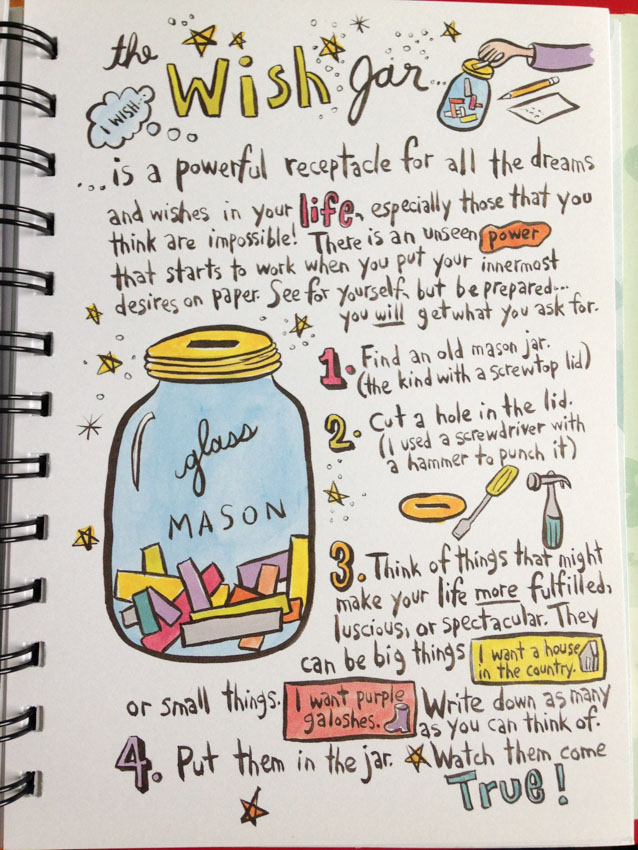 the Wish Jar...
I WISH...
...is a powerful receptacle for all the dreams
and wishes in your life, especially those that you
think are impossible! There is an unseen power
that starts to work when you put your innermost
desires on paper. See for yourself, but be prepared...
you will get what you ask for.
1. Find an old mason jar.
(the kind with a screwtop lid)
2. Cut a hole in the lid.
(I used a screwdriver with
a hammer to punch it)
glass
MASON
3. Think of things that might
make your life more fulfilled,
luscious, or spectacular. They
can be big things
I want a house
in the country.
or small things.
I want purple
galoshes.
Write down as many
as you can think of.
4. Put them in the jar. Watch them come
True!